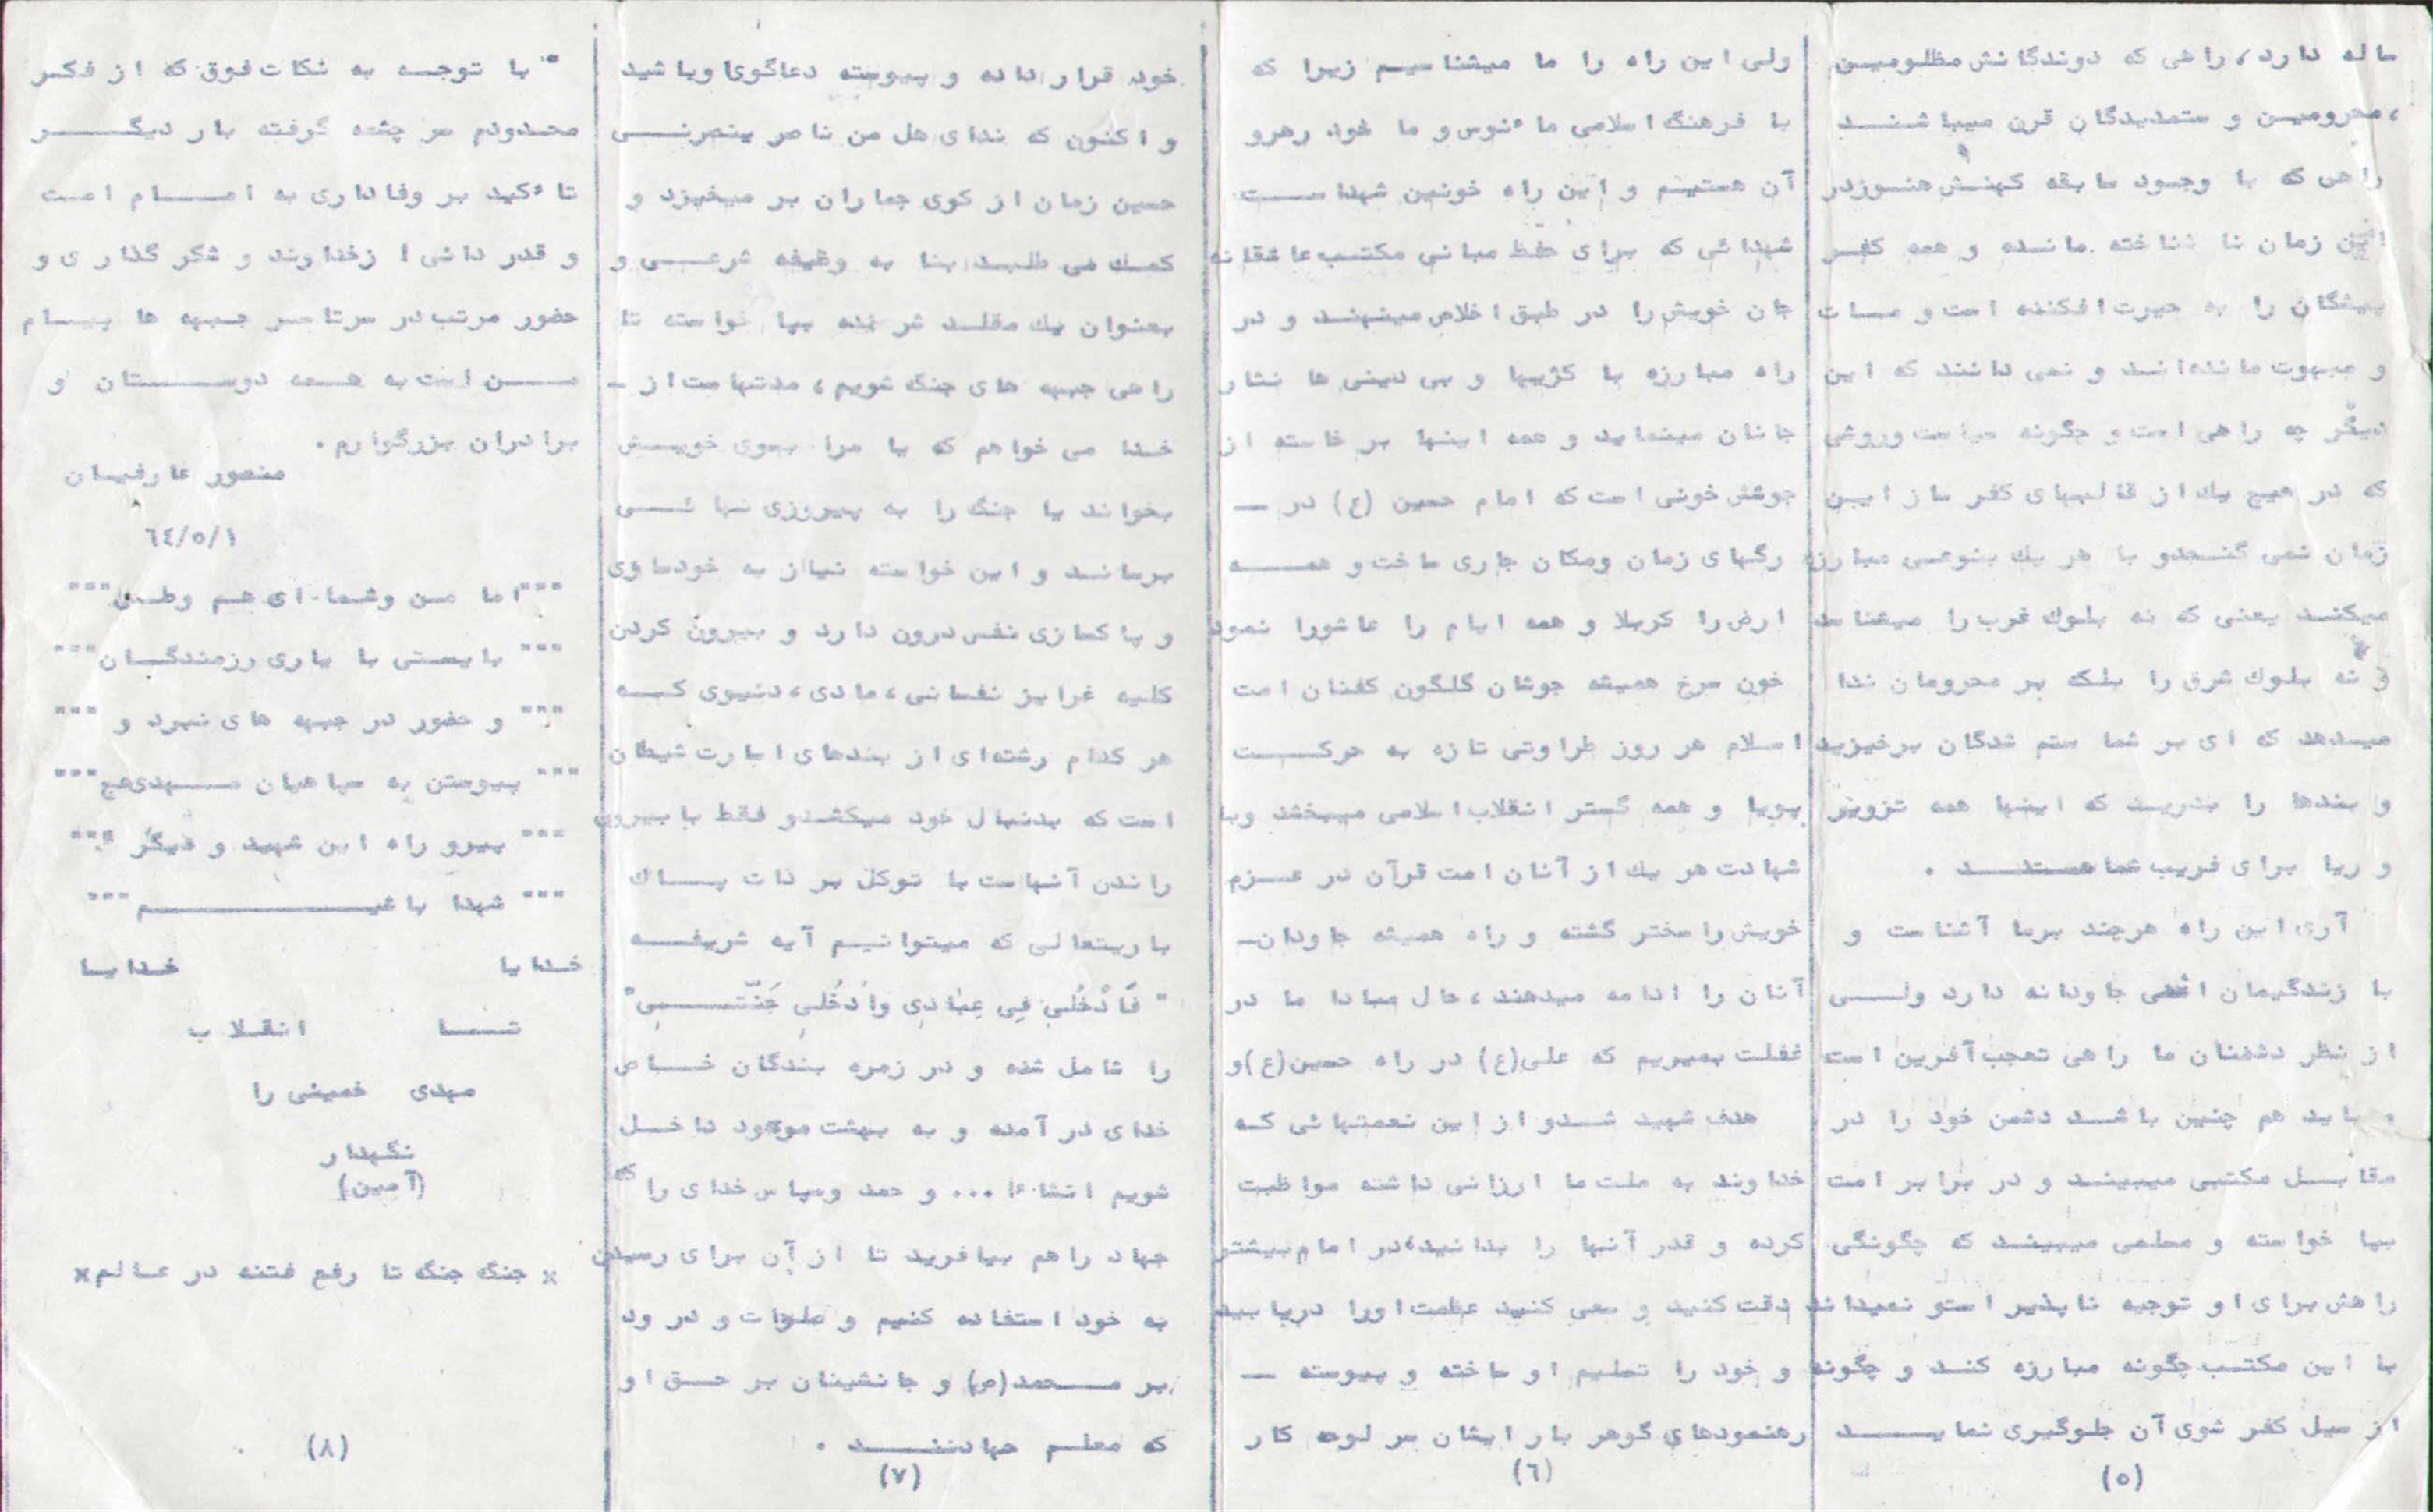 ساله دارد، راهی که دوندگانش مظلومیــن
، محرومیــن و ستمدیدگان قرن میباشنــد
راهی که با وجــود سابقه کهنــش هنــوزدر
این زمان نا شناخته مانــده و همه کفــر
پیشگان را به حیرت افکنده است و مــات
و مبهوت مانده‌انــد و نمی دانند که این
دیگر چه راهی است و چگونه سیاست وروشی
که در هیچ یك از قالبهای کفر ساز ایــن
زمان نمی گنــجدو با هر یك بنوعــی مبارزه
میکنــد یعنی که نه بلوك غرب را میشناسد
و نه بلــوك شرق را بلکه بر محرومان ندا
میــدهد که ای بر شما ستم شدگان برخیزید
و بندها را بدریــد که اینها همه تزویــر
و ریا برای فریب شما هستنــــد .
آری این راه هرچند برما آشناست و
با زندگیمان انسی جاودانه دارد ولــــی
از نظر دشمنان ما راهی تعجب‌آفرین است
و باید هم چنین باشــد دشمن خود را در
مقابــل مکتبی میبینــد و در برابر امت
بپا خواسته و معلمی میبینــد که چگونگی
راهش برای او توجیه ناپذیر استو نمیداند
با این مکتــب چگونه مبارزه کنــد و چگونه
از سیل کفر شوی آن جلوگیری نمایــــد
(٥)
ولی این راه را ما میشناسیــم زیرا که
با فرهنگ اسلامی ما ٔنوس و ما خود رهرو
آن هستیــم و این راه خونین شهداســـت
شهدائی که برای حفظ مبانی مکتــب عاشقانه
جان خویش را در طبق اخلاص مینهنــد و در
راه مبارزه با کژیها و بی دینی ها نثار
جانان مینماید و همه اینها بر خاسته از
جوشش خونی است که امام حسین (ع) در ــ
رگهای زمان ومکان جاری ساخت و همــــه
ارض را کربلا و همه ایام را عاشورا نمود
خون سرخ همیشه جوشان گلگون کفنان امت
اسلام هر روز طراوتی تازه به حرکــــت
پویا و همه گستر انقلاب اسلامی میبخشد وبا
شهادت هر یك از آنان امت قرآن در عــزم
خویش را سختر گشته و راه همیشه جاودان‌ــ
آنان را ادامه میدهند ، حال مبادا ما در
غفلت بمیریم که علی(ع) در راه حسین(ع)و
هدف شهید شــدو از این نعمتهائی کــه
خداوند به ملت ما ارزانی داشته مواظبت
کرده و قدر آنها را بدانید،در امام بیشتر
دقت کنید و سعی کنید عظمت اورا دریابید
و خود را تسلیم او ساخته و پیوسته ــ
رهنمودهای گوهر بار ایشان سر لوحه کار
(٦)
خود قرار داده و پیوسته دعاگوی اوباشید
و اکنون که ندای هل من ناصر ینصرنــــی
حسین زمان از کوی جماران بر میخیزد و
کمــك می طلبــد، بنا به وظیفه شرعــــی و
بعنوان یك مقلــد شرمنده بپا خواسته تا
راهی جبهه های جنگ شویم ، مدتهاست از ــ
خــدا می خواهم که یا مرا بسوی خویــش
بخواند یا جنگ را به پیروزی نهائـــی
برسانــد و این خواسته نیاز به خودسازی
و پاکسازی نفس درون دارد و بیرون کردن
کلیه غرایز نفسانی ، مادی ، دنیوی کــه
هر کدام رشته‌ای از بندهای اسارت شیطان
است که بدنبال خود میکشــدو فقط با بیرون
راندن آنهاست با توکل بر ذات پــاك
باریتعالــی که میتوانیــم آیه شریفــه
" فَاَدْخُلی فِی عِبٰادی وَادْخُلی جَنّتــــی"
را شامل شده و در زمره بندگان خــاص
خدای در آمده و به بهشت موعود داخــل
شویم انشاءا ... و حمد وسپاس خدای را که
جهاد را هم بیافرید تا از آن برای رسیدن
به خود استفاده کنیم و صلوات و درود
بر مــحمد(ص) و جانشینان بر حــق او
که معلــم جهادننــــد .
(٧)
" با توجــه به نکات فوق که از فکــر
محدودم سر چشمه گرفته بار دیگــــر
تا ٔکید بر وفاداری به امــام امت
و قدر دانی از خداوند و شکر گذاری و
حضور مرتب در سرتاسر جبهه ها پیــام
مــن است به همــه دوستــان و
برادران بزرگوارم .
منصور عارفیــان
٦٤/٥/١
"""اما من وشما ای هــم وطــن"""
""" بایستی با یاری رزمندگــان"""
""" و حضور در جبهه های نبرد و """
""" پیوستن به سپاهیان مــهدی‌عج"""
""" پیرو راه این شهید و دیگر """
""" شهدا باشیـــــــم"""
خدایا خدایــا
تــــا انقلاب
مهدی خمینی را
نگهدار
(آمین)
× جنگ جنگ تا رفع فتنه در عــالم×
(٨)